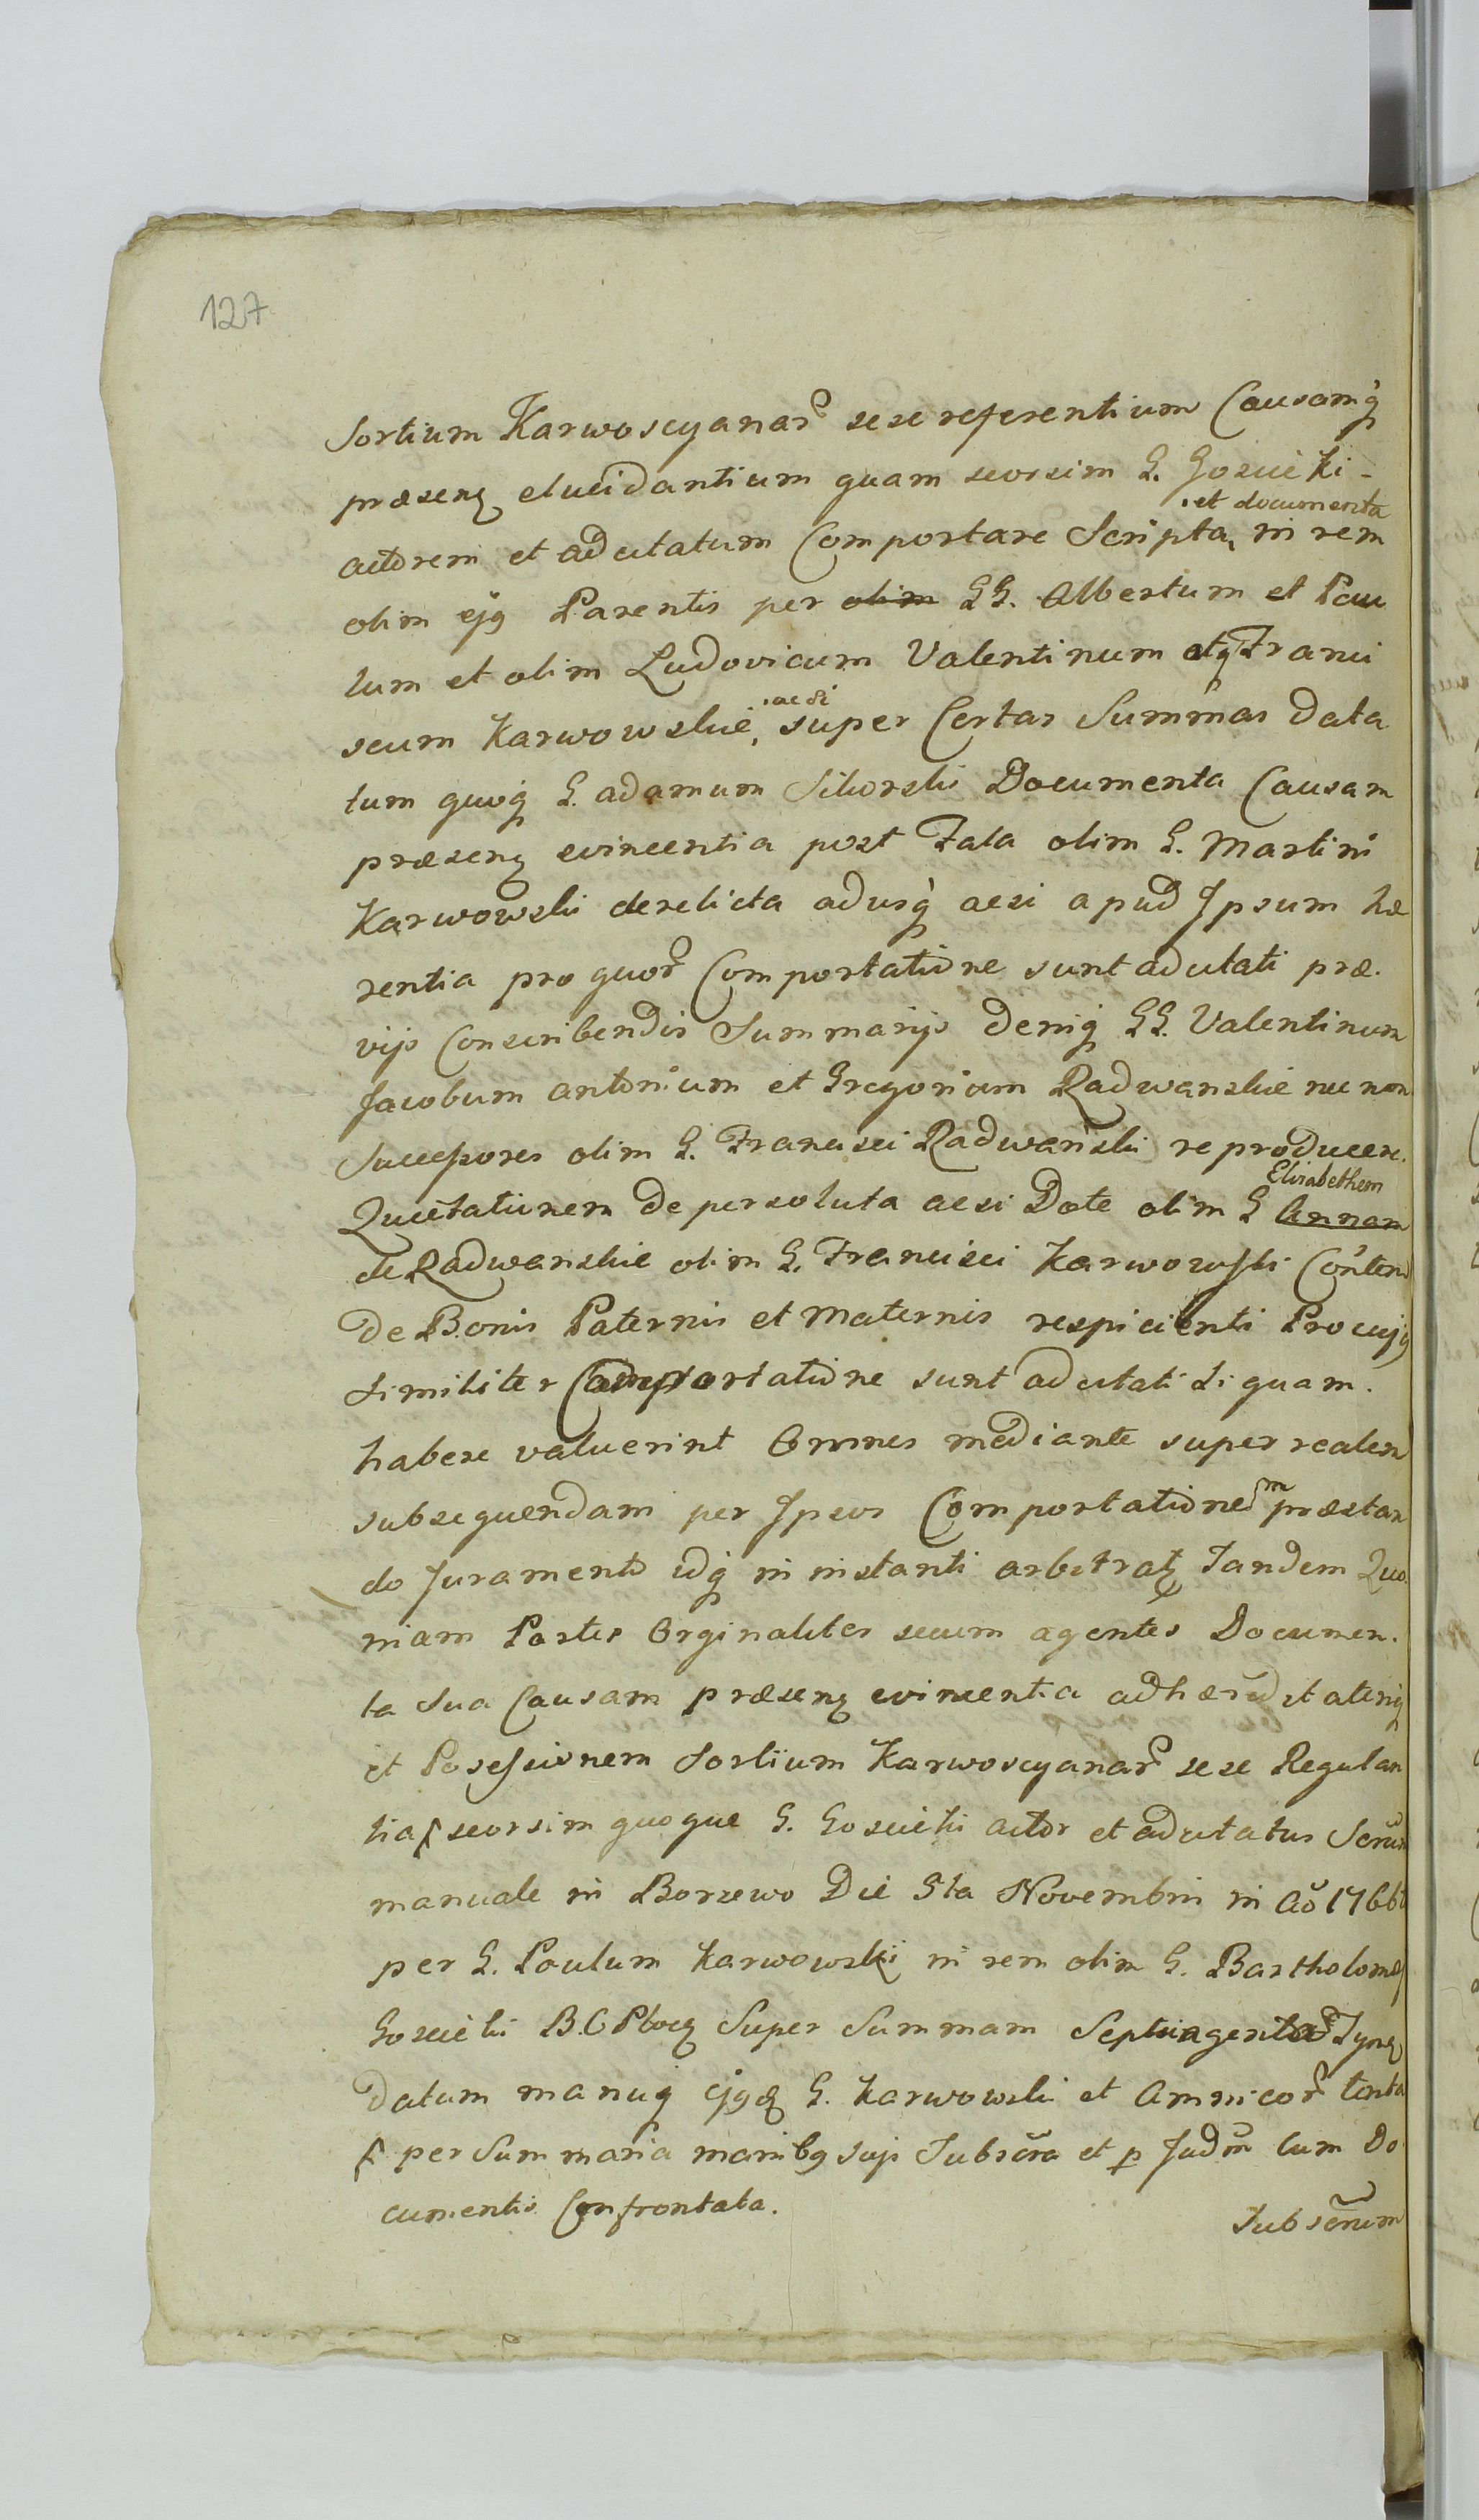 127
Sortium Karwoscyanar̃ sese referentium Causamq̃
præsenȝ elucidantium quam seorsim G. Gosiicki
actorem et adcitatum Comportare Scripta et documenta in rem
olim ejꝯ Parentis per olim GG. Albertum et Pau
lum et olim Ludovicum Valentinum atq̃ Franci
scum Karwowskie, acsi super Certas Summas data
tum quoq̃ G. adamum Sikorski Documenta Causam
præsenȝ evincentia post Fata olim G. Martini
Karwowski derelicta adusq̃ acsi apud Ipsum hæ
rentia pro quor̃ Comportatione sunt adcitati præ.
vijs Conscribendis Summarijs deniq̃ GG. Valentinum
Jacobum antonium et Gregorium Radwanskie nec non
Successores olim G. Francisci Radwański reproducere.
Quietationem de persoluta acsi Dote olim G Annam Elisabethem
de Radwanskie olim G. Francisci Karwowski Conten
De Bonis Paternis et Maternis respicienti Pro cujꝯ
Similiter Comportatione sunt adcitati Si quam.
habere valuerint Omnes mediante super realem
subsequendam per Ipsos Comportationem præstan
do Juramento idq̃ in instanti arbitratȝ Tandem Quo.
niam Partes Orginaliter secum agentes Documen.
ta Sua Causam præsenȝ evincentia ad hæreditatemq̃
et Possessionem Sortium Karwoscyanar̃ sese Regulan
tia seorsim quoque G. Gosiicki actor et adcitatus Scrm̃
manuale in Borzewo Die 5ta Novembris in Aõ 1766to
per G. Paulum Karwowski in rem olim G. Bartholomej
Gosiicki B. C Plocȝ Super Summam Septuagenta Tynȝ
datum manuq̃ ejꝯdȝ G. Karwowski et Amicor̃ tenta
per Summaria manibꝯ suis Subscr̃a et p Judm̃ cum Do
cumentis Confrontata.
Subscr̃um